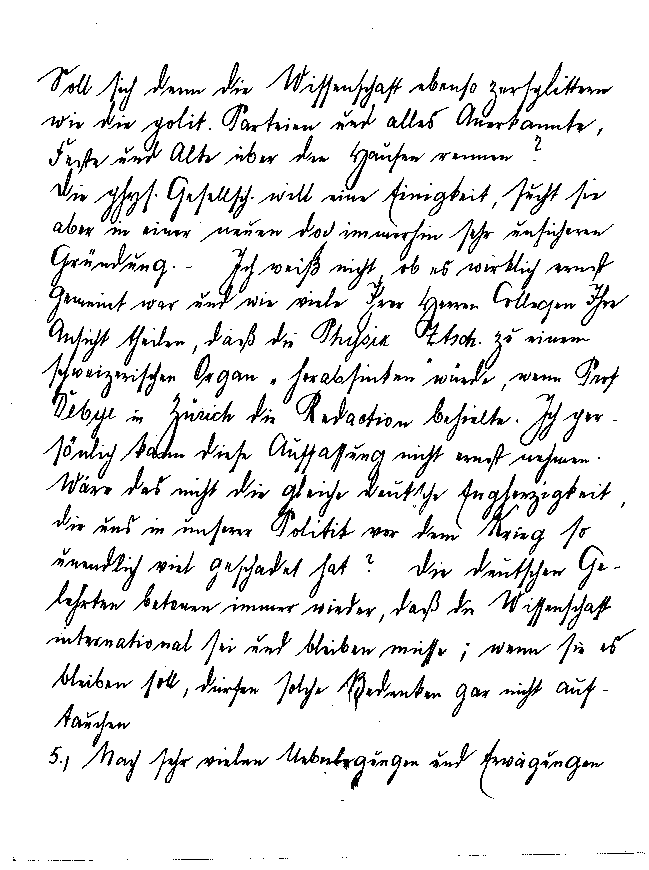 Soll sich denn die Wissenschaft ebenso zersplittern
wie die polit. Parteien und alles Anerkannte,
Feste und Alte über den Haufen rennen?
Die phys. Gesellsch. will eine Einigkeit, sucht sie
aber in einer neuen doch immerhin sehr unsicheren
Gründung. – Ich weiß nicht, ob es wirklich ernst
gemeint war und wie viele Ihrer Herren Collegen Ihre
Ansicht theilen, daß die Physik. Ztsch. zu einem
schweizerischen Organ „herabsinken" würde, wenn Prof
Debye in Zürich die Redaction behielte. Ich per-
sönlich kann diese Auffassung nicht ernst nehmen.
Wäre das nicht die gleiche deutsche Engherzigkeit,
die uns in unserer Politik vor dem Krieg so
unendlich viel geschadet hat? Die deutschen Ge-
lehrten betonen immer wieder, daß die Wissenschaft
international sei und bleiben müsse; wenn sie es
bleiben soll, dürfen solche Bedenken gar nicht auf-
tauchen
5., Nach sehr vielen Ueberlegungen und Erwägungen